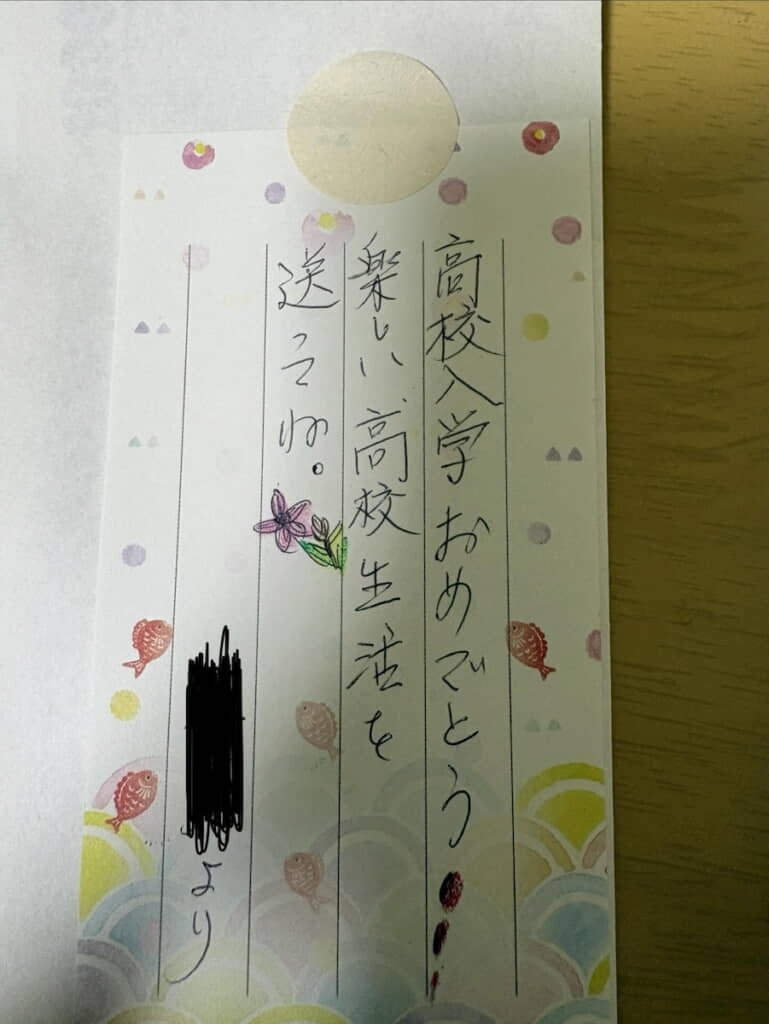 高校入学おめでとう!
楽しい高校生活を
送ってね。
より